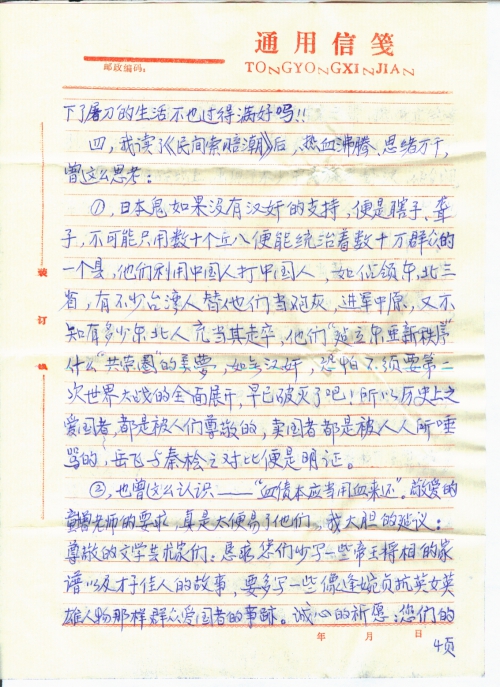 通用信笺
邮政编码:
TONGYONGXINJIAN
下了屠刀的生活不也过得满好吗!!
四,我读了《民间索赔潮》后,热血沸腾、思绪万千,
曾这么思考:
①,日本鬼如果没有汉奸的支持,便是瞎子、聋
子,不可能只用数十个丘八便能统治着数十万群众的
一个县,他们利用中国人打中国人,如促领东北三
省,有不少台湾人替他们当炮灰,进军中原,又不
知有多少东北人充当其走卒,他们“建立东亚新秩序”
什么“共荣圈”的美夢,如无汉奸,恐怕不须要第二
次世界大战的全面展开,早已破灭了吧!所以历史上之
爱国者,都是被人们尊敬的,卖国者都是被人人所唾
骂的,岳飞与秦桧之对比便是明证。
②,也曾这么认识——“血债本应当用血来还”。敬爱的
童增老师的要求,真是太便易了他们。我大胆的建议:
尊敬的文学艺术家们:恳求您们少写一些帝王将相的家
谱以及才子佳人的故事,要多写一些像逢婉贞抗英女英
雄人物那样群众爱国者的事跡。诚心的祈愿:您们的
装
订
线
年 月 日
4页